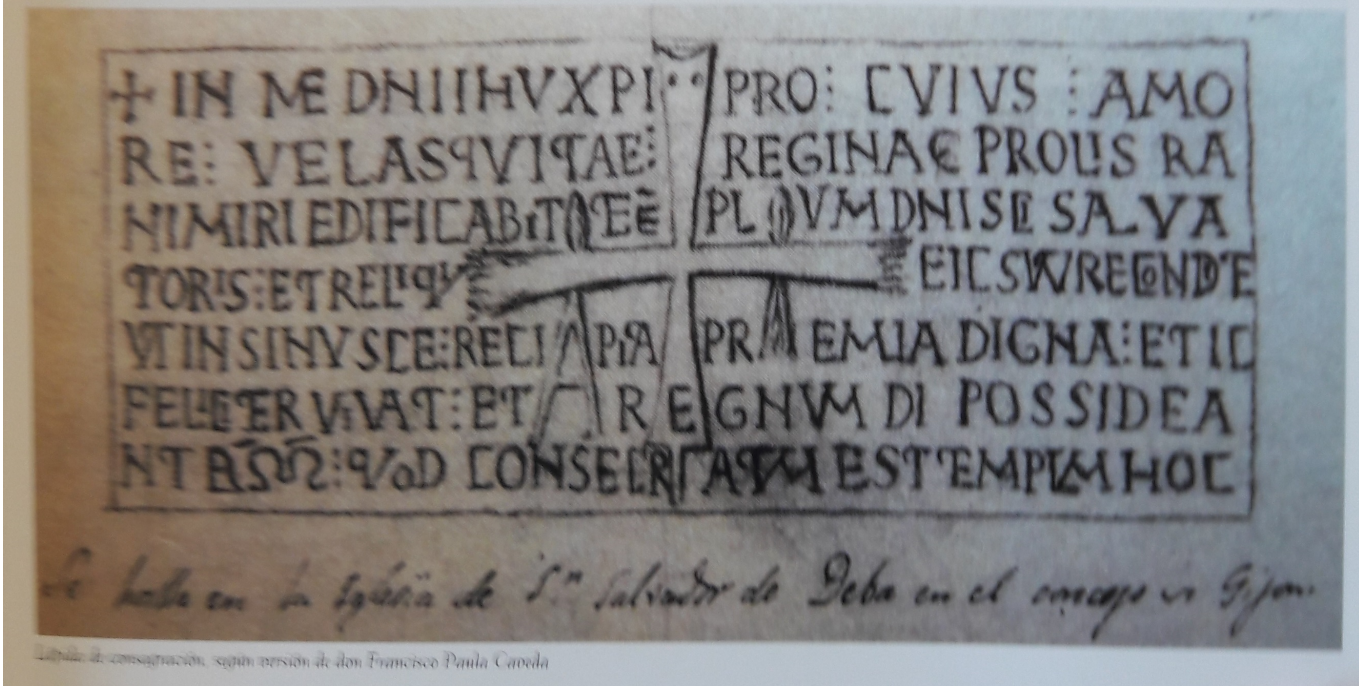 + IN ME DNI IHV XPI·· PRO⫶ CVIVS ⫶ AMO
RE⫶ VELASQVITAE⫶ REGINAE PROLIS RA
NIMIRI EDIFICABIT PLVM DNI SCI SALVA
TORIS⫶ ET RELIQV EICSVVRECONDTE
VT IN SINV SCE⫶ RECIAPIA PRAEMIA DIGNA⫶ ET IC
FELICITER VIVAT⫶ ET REGNVM DI POSSIDEA
NT QVOD CONSECRATVM EST TEMPLVM HOC
Se halla en la Iglesia de Sn Salvador de Deba en el concejo Gijon.
Lápida de consagración, según versión de don Francisco Paula Caveda